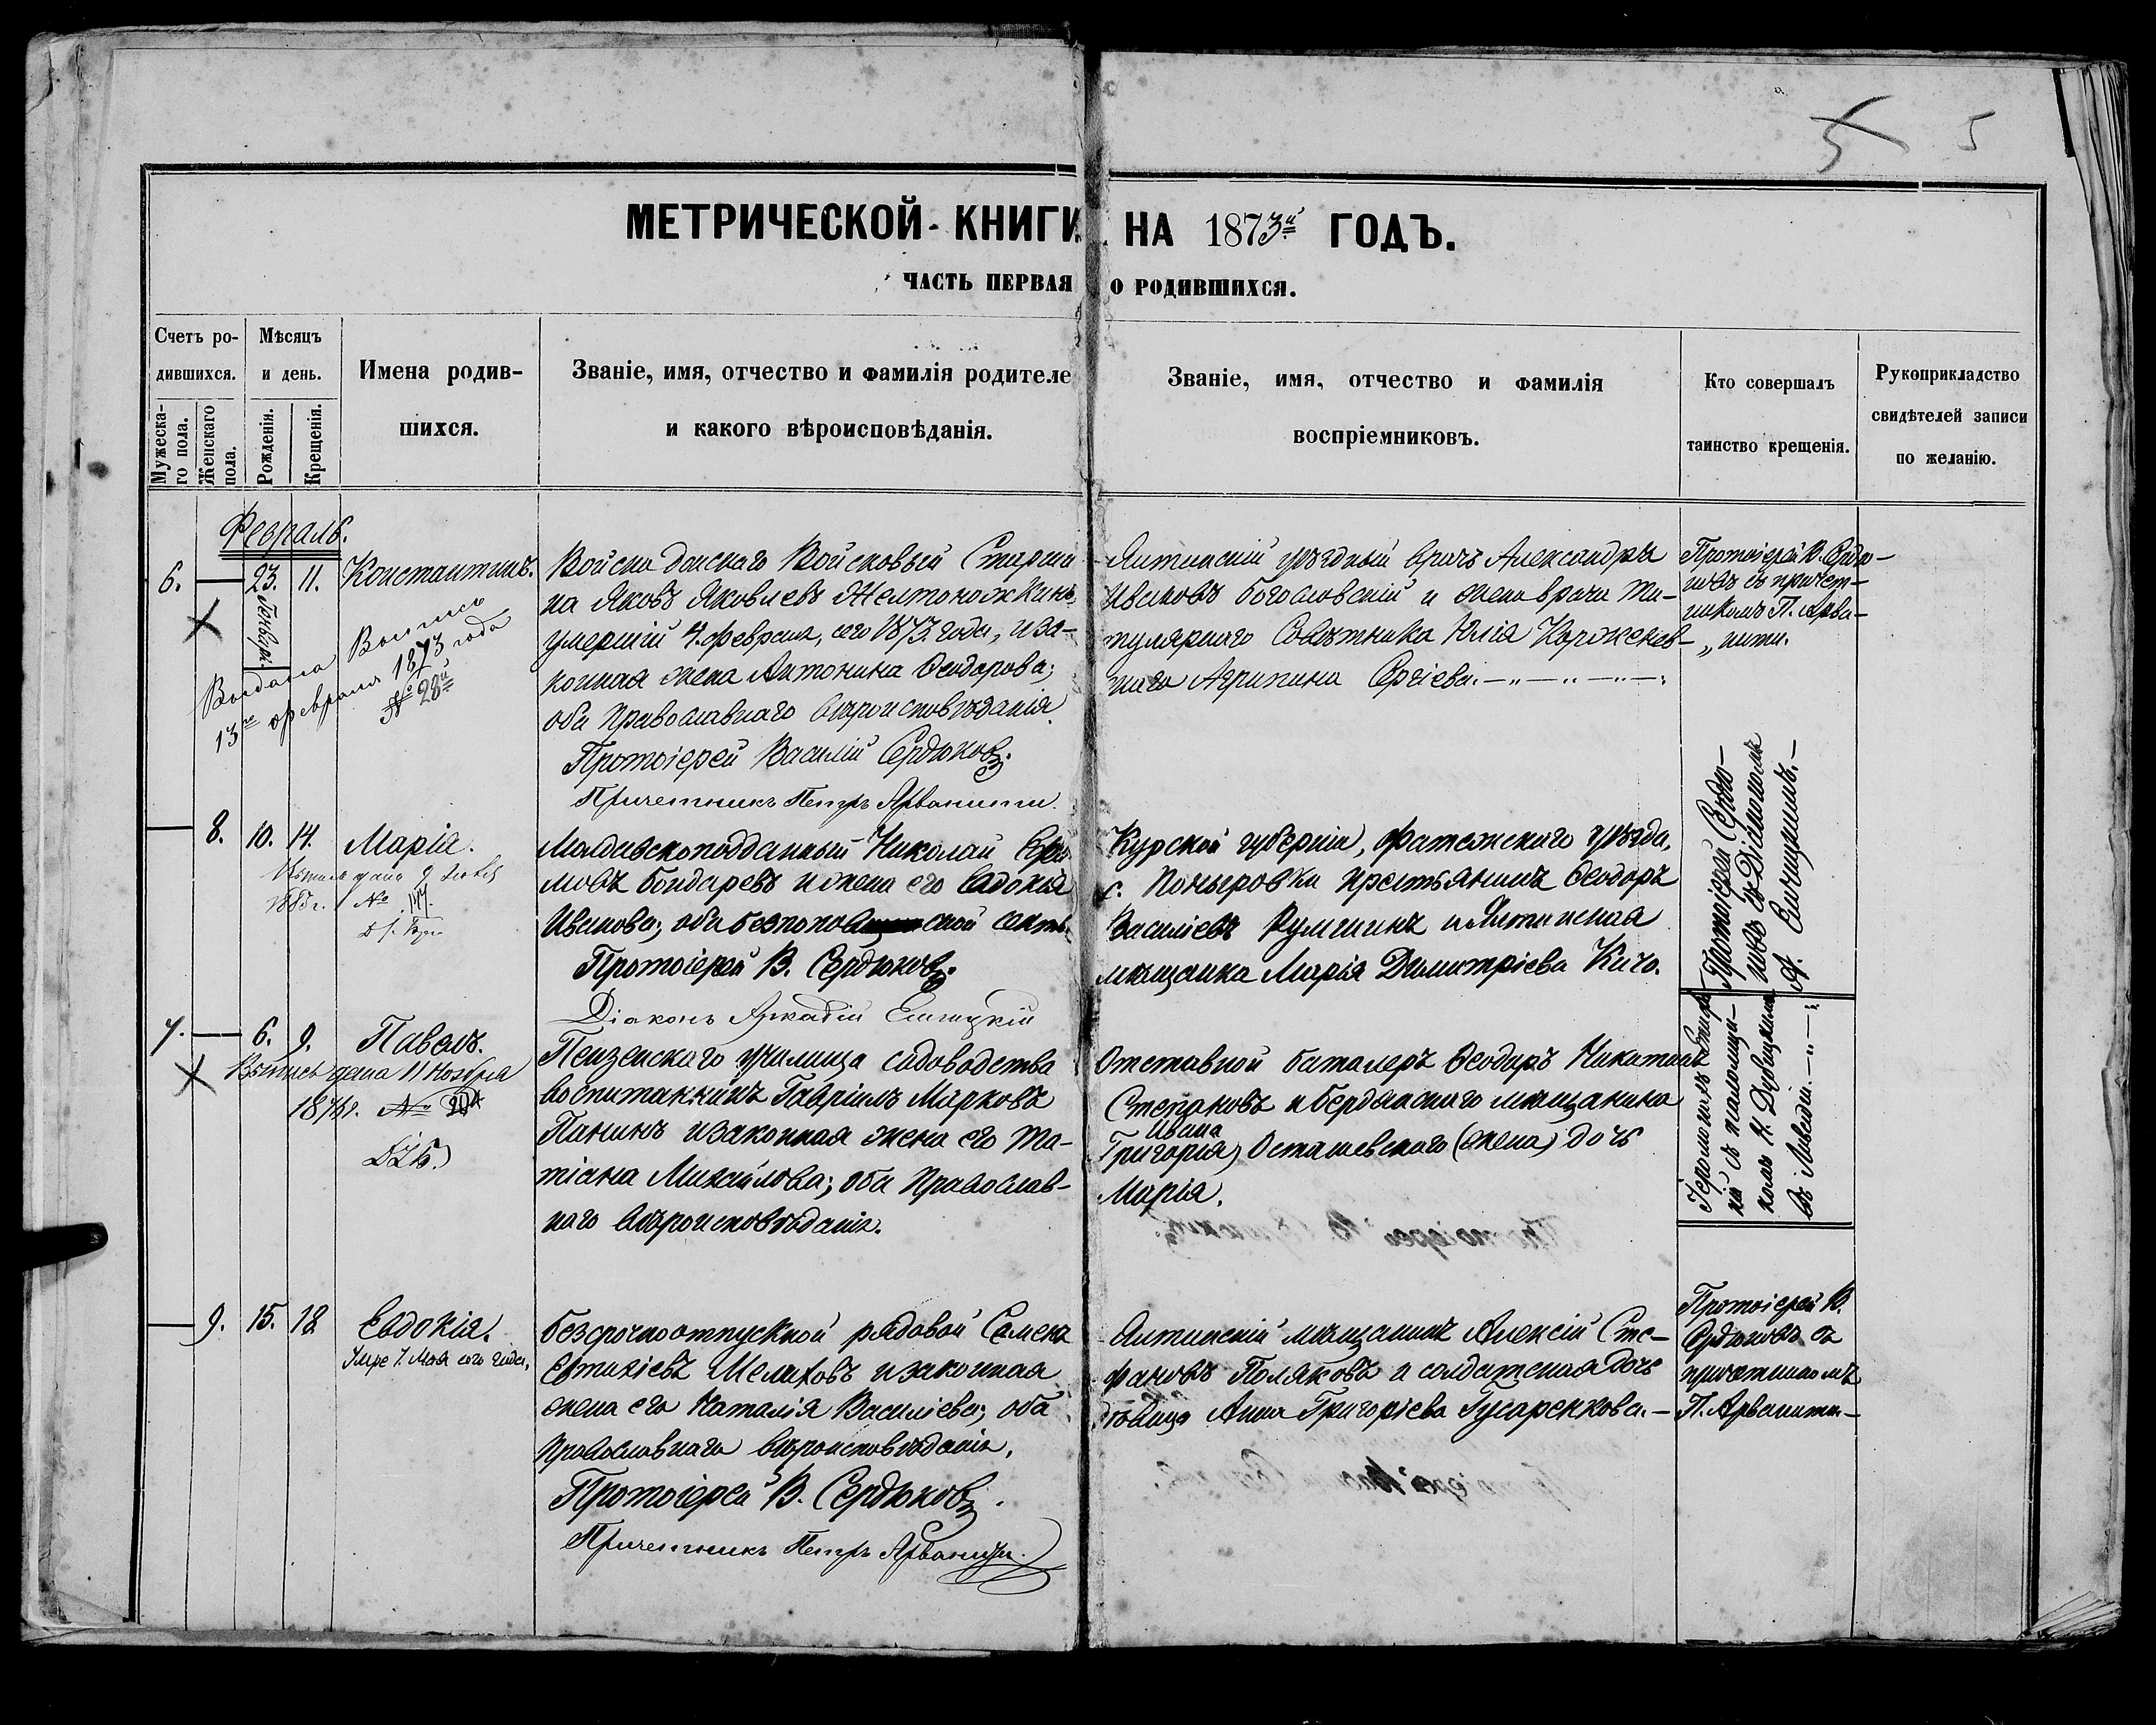 5 5
МЕТРИЧЕСКОЙ КНИГИ НА 1873й ГОДЪ.
ЧАСТЬ ПЕРВАЯ О РОДИВШИХСЯ.
Счетъ ро-
дившихся.
Мужеска-
го пола.
Женскаго
пола.
Мѣсяцъ
и день.
Рожденія.
Крещенія.
Имена родив-
шихся.
Званіе, имя, отчество и фамилія родителе
и какого вѣроисповѣданія.
Званіе, имя, отчество и фамилія
воспріемниковъ.
Кто совершалъ
таинство крещенія.
Рукоприкладство
свидѣтелей записи
по желанію.
Февраль.
6. — 23. 11. Константинъ.
Января.
Выдана Выпись
13го февраля 1873 года
№ 28й
Войска донскаго Войсковый Старши
на Яковъ Яковлевъ Желтоножкинъ
умершій 4. февраля, сего 1873. года, и за-
конная жена Антонина Ѳеодорова;
оба Православнаго вѣроисповѣданія.
Протоіерей Василій Сердюковъ.
Причетникъ Петръ Арванити.
Ялтинскій уѣздный врачъ Александръ
Ивановъ Богословскій и жена врача Ти-
тулярнаго Совѣтника Юлія
Агрипина Сергіева.
Протоіерей В. Сердю-
ковъ съ причет-
никомъ П. Арва-
нити.
— 8. 10. 14. Марія.
1885 г. №
Николай
Бондаревъ и жена его Евдокія
Иванова; оба безпоповской секты.
Протоіерей В. Сердюковъ.
Діаконъ Аркадій
Курской губерніи, Фатежскаго уѣзда,
с. Поныровки крестьянинъ Ѳеодоръ
Василіевъ и Ялтинская
мѣщанка Марія Димитріева Кичо.
Протоіерей Сердю-
ковъ съ Діакономъ
А.
7. — 6. 9. Павелъ.
Выпись дана 11 Ноября
№
Пензенскаго училища садоводства
воспитанникъ Гавріилъ Марковъ
Панинъ и законная жена его Та-
тіана Михайлова; оба Православ-
наго вѣроисповѣданія.
Отставной баталеръ Ѳеодоръ Никитинъ
Степановъ и Бердянскаго мѣщанина
Ивана
Григорія) Осташевскаго (жена) дочь
Марія.
Іеромонахъ
въ Ливадіи.
— 9. 15. 18. Евдокія.
Умре 7. Мая сего года.
Безсрочноотпускной рядовой Семенъ
Евтихіевъ Мелиховъ и законная
жена его Наталія Василіева; оба
Православнаго вѣроисповѣданія.
Протоіерей В. Сердюковъ.
Причетникъ Петръ Арванити.
Ялтинскій мѣщанинъ Алексій Сте-
фановъ Поляковъ и солдатская дочь
дѣвица Анна Григоріева Гусаренкова.—
Протоіерей В.
Сердюковъ съ
причетникомъ
П. Арванити.—